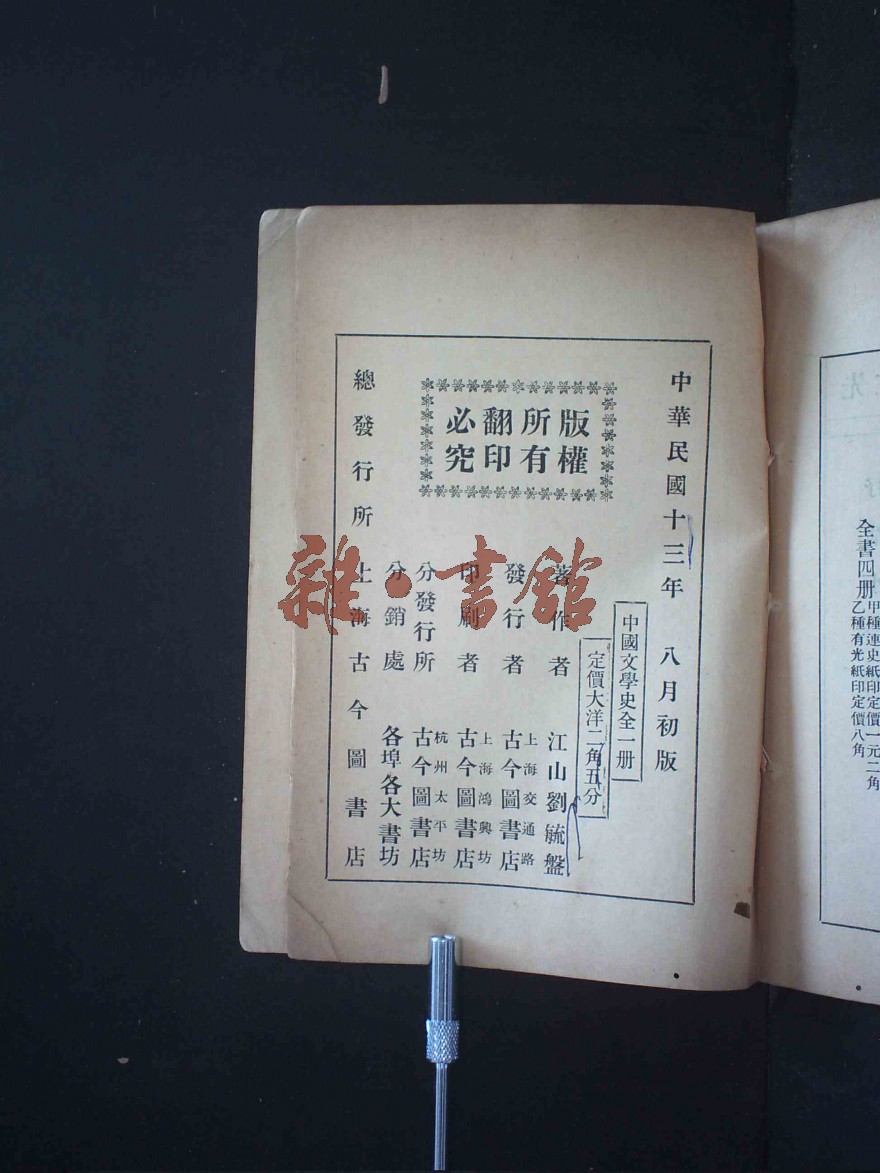 中華民國十三年 八月初版
中國文學史全一册
定價大洋二角五分
版權
所有
翻印
必究
著作者 江山劉毓盤
發行者 上海交通路 古今圖書店
印刷者 上海鴻興坊 古今圖書店
分發行所 杭州太平坊 古今圖書店
分銷處 各埠各大書坊
總發行所 上海古今圖書店
全書四册
甲種連史紙印定價一元二角
乙種有光紙印定價八角
雜·書館